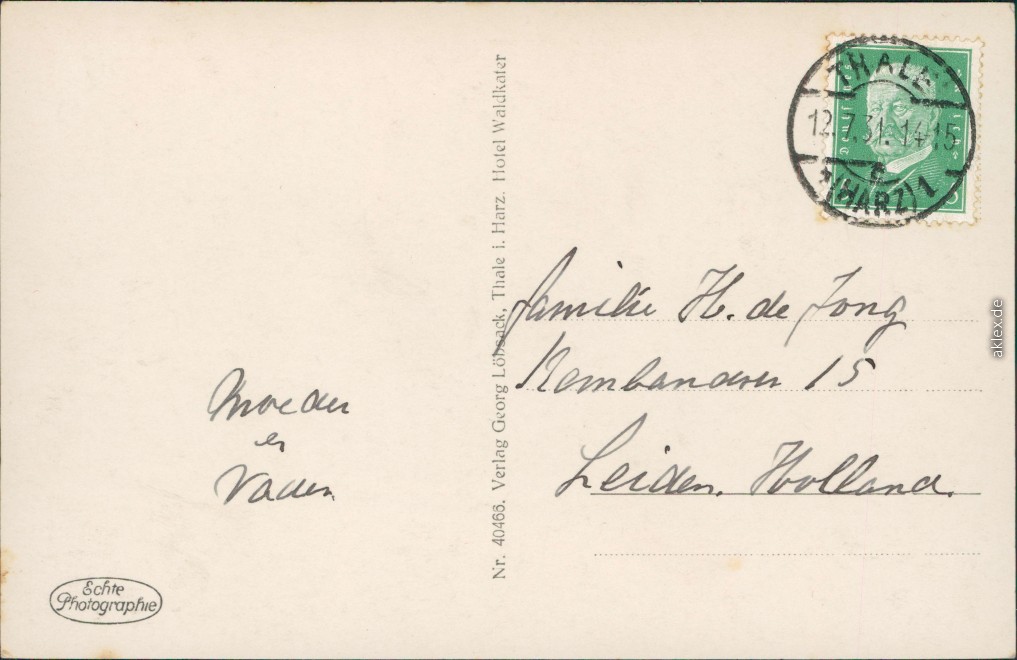 THALE
12.7.31.14-15
c
*(HARZ)1
Familie H. de Jong
15
Leiden. Holland.
Moeder
en
Vader.
Nr. 40466. Verlag Georg Löbsack, Thale i. Harz. Hotel Waldkater
Echte
Photographie
aklex.de